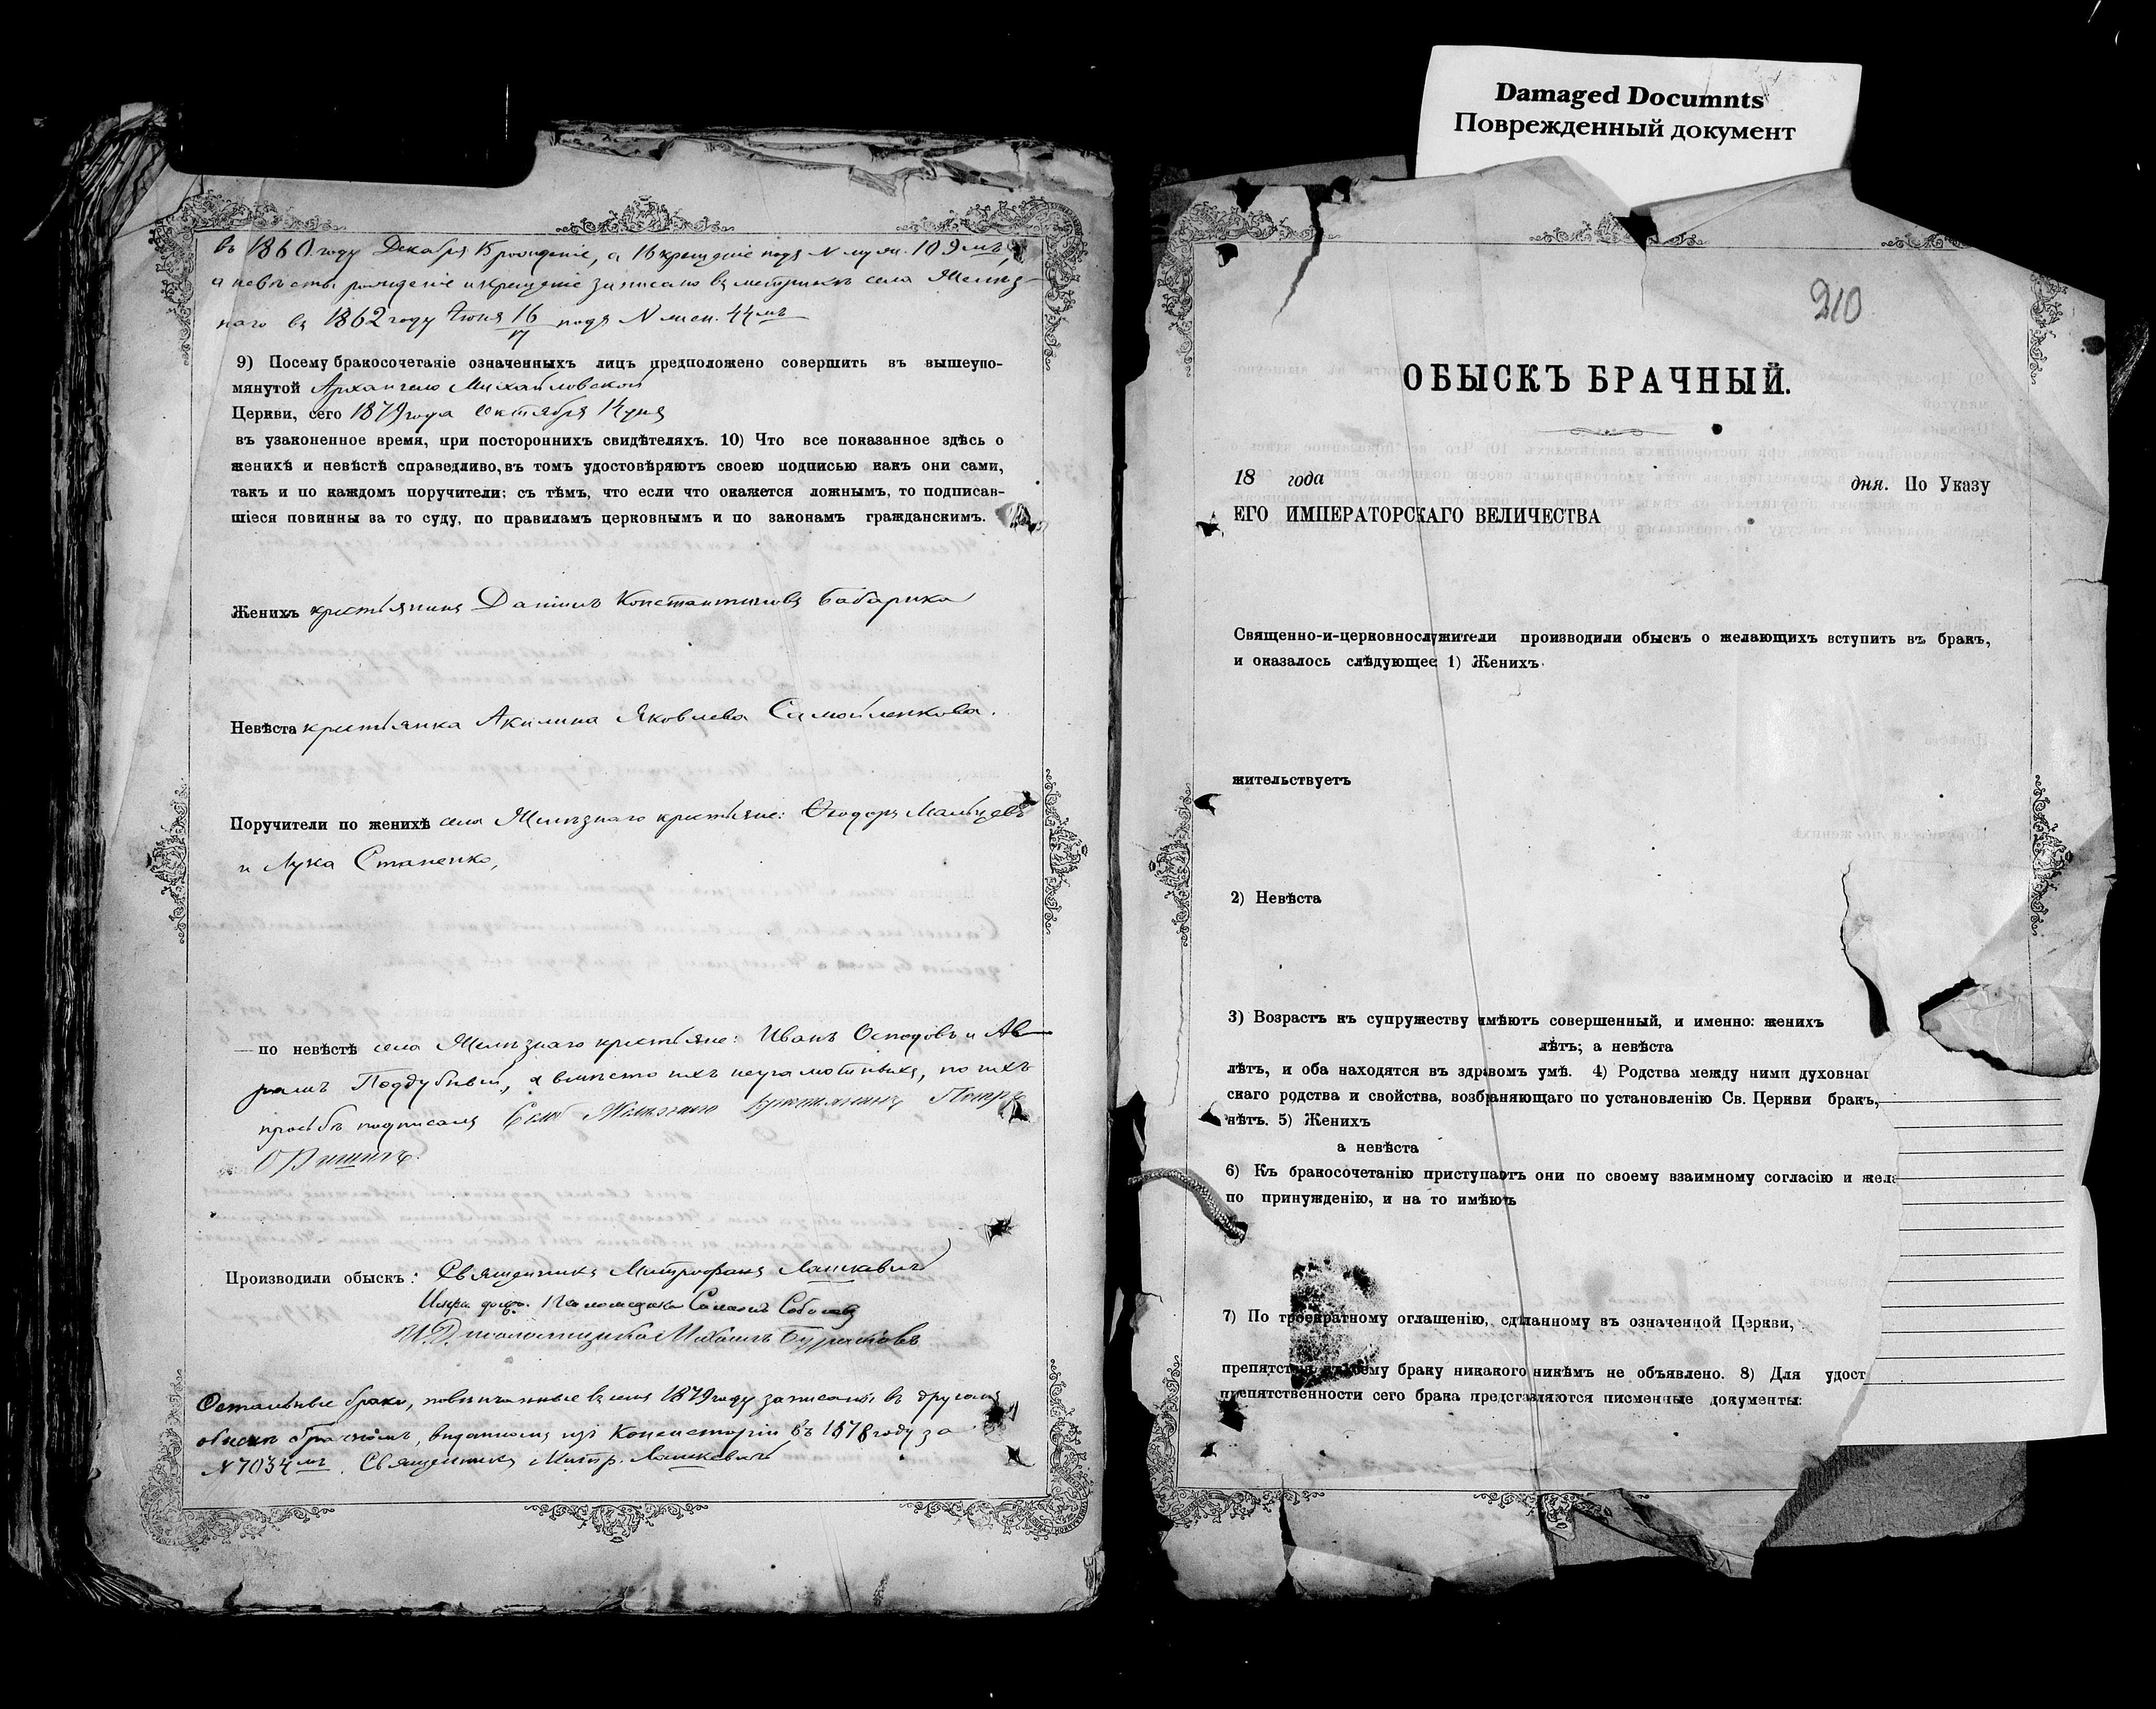 въ 1860 году Декабря 15 рождение, а 16 крещение подъ N муж. 109 мъ,
а невѣсты рождение и крещение записано въ метрикѣ села Желѣз-
наго въ 1862 году Июня 16/17 подъ N жен. 44 мъ
9) Посему бракосочетаніе означенныхъ лицъ предположено совершить въ вышеупо-
мянутой Архангело Михайловской
Церкви, сего 1879 года октября 14 дня
въ узаконенное время, при постороннихъ свидѣтеляхъ. 10) Что все показанное здѣсь о
женихѣ и невѣстѣ справедливо, въ томъ удостовѣряютъ своею подписью какъ они сами,
такъ и по каждомъ поручители; съ тѣмъ, что если что окажется ложнымъ, то подписав-
шіеся повинны за то суду, по правиламъ церковнымъ и по законамъ гражданскимъ.
Женихъ крестьянинъ Даніилъ Константиновъ Бабарика
Невѣста крестьянка Акилина Яковлева Самойленкова.
Поручители по женихѣ села Желѣзнаго крестьяне: Ѳеодоръ Мальцевъ
и Лука Стапенко,
— по невѣстѣ села Желѣзнаго крестьяне: Иванъ Осподовъ и Ав-
рамъ Поддубный, а вмѣсто ихъ неграмотныхъ, по ихъ
просьбѣ подписалъ Села Желѣзнаго крестьянинъ Петръ
Производили обыскъ: Священникъ Митрофанъ Лашкевичъ
Псаломщикъ Самсонъ Соболевъ
И. Д. псаломщика Михаилъ Бурястовъ
Остальные браки, повѣнчанные въ 1879 году записаны въ другомъ
обыскѣ брачномъ, выданномъ изъ Консисторіи въ 1878 году за
N 7034 мъ. Священникъ Митр. Лашкевичъ
Damaged Documnts
Поврежденный документ
210
ОБЫСКЪ БРАЧНЫЙ.
18 года дня. По Указу
ЕГО ИМПЕРАТОРСКАГО ВЕЛИЧЕСТВА
Священно-и-церковнослужители производили обыскъ о желающихъ вступить въ бракъ,
и оказалось слѣдующее 1) Женихъ
жительствуетъ
2) Невѣста
3) Возрастъ къ супружеству имѣютъ совершенный, и именно: женихъ
лѣтъ; а невѣста
лѣтъ, и оба находятся въ здравомъ умѣ. 4) Родства между ними духовнаг
скаго родства и свойства, возбраняющаго по установленію Св. Церкви бракъ,
нѣтъ. 5) Женихъ
а невѣста
6) Къ бракосочетанію приступаютъ они по своему взаимному согласію и жела
по принужденію, и на то имѣютъ
7) По троекратному оглашенію, сдѣланному въ означенной Церкви,
препятствія къ сему браку никакого никѣмъ не объявлено. 8) Для удост
препятственности сего брака представляются писменные документы: